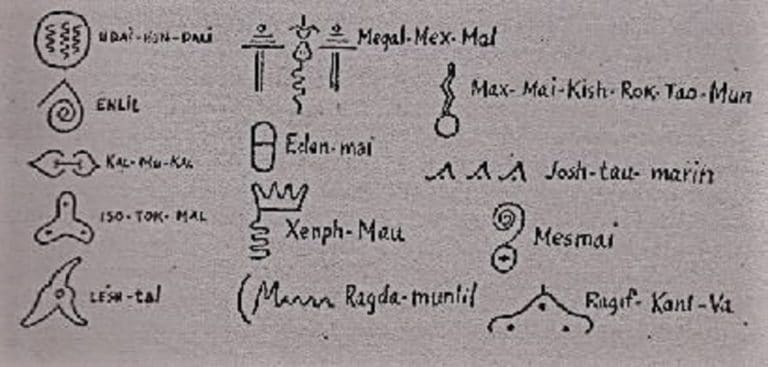 ENLIL
KAL-MU-KAL
ISO-TOK-MAL
LESH-tal
Megal-Mex-Mal
Eden-mai
Xenph-Mau
Ragda-muntil
Max-Mai-Kish-Rok-Tao-Mun
Josh-tau-marin
Mesmai
Ragif-Kant-Va